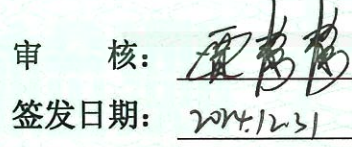 审 核：
签发日期：2024.12.31